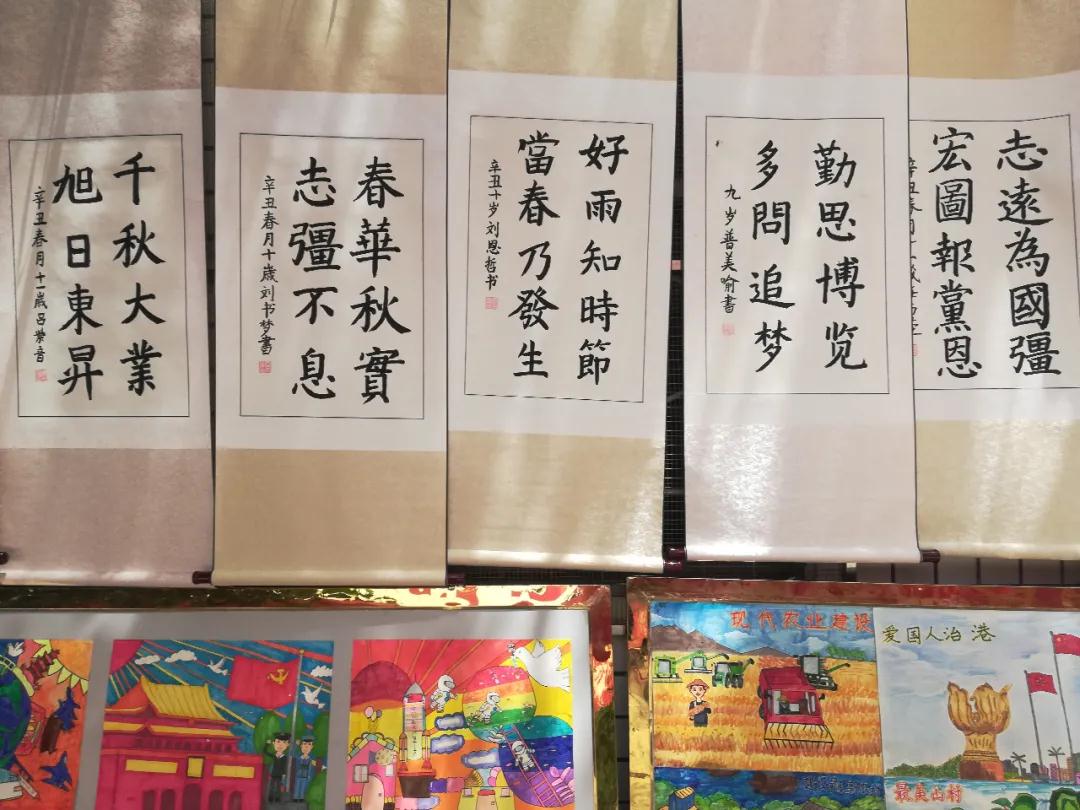 千秋大業
旭日東昇
辛丑春月十一歲吕紫音
春華秋實
志彊不息
辛丑春月十歲刘书梦書
好雨知時節
當春乃發生
辛丑十岁刘恩哲书
勤思博览
多問追梦
九岁普美喻書
志遠為國彊
宏圖報黨恩
现代农业建设
爱国人治港
最美山村